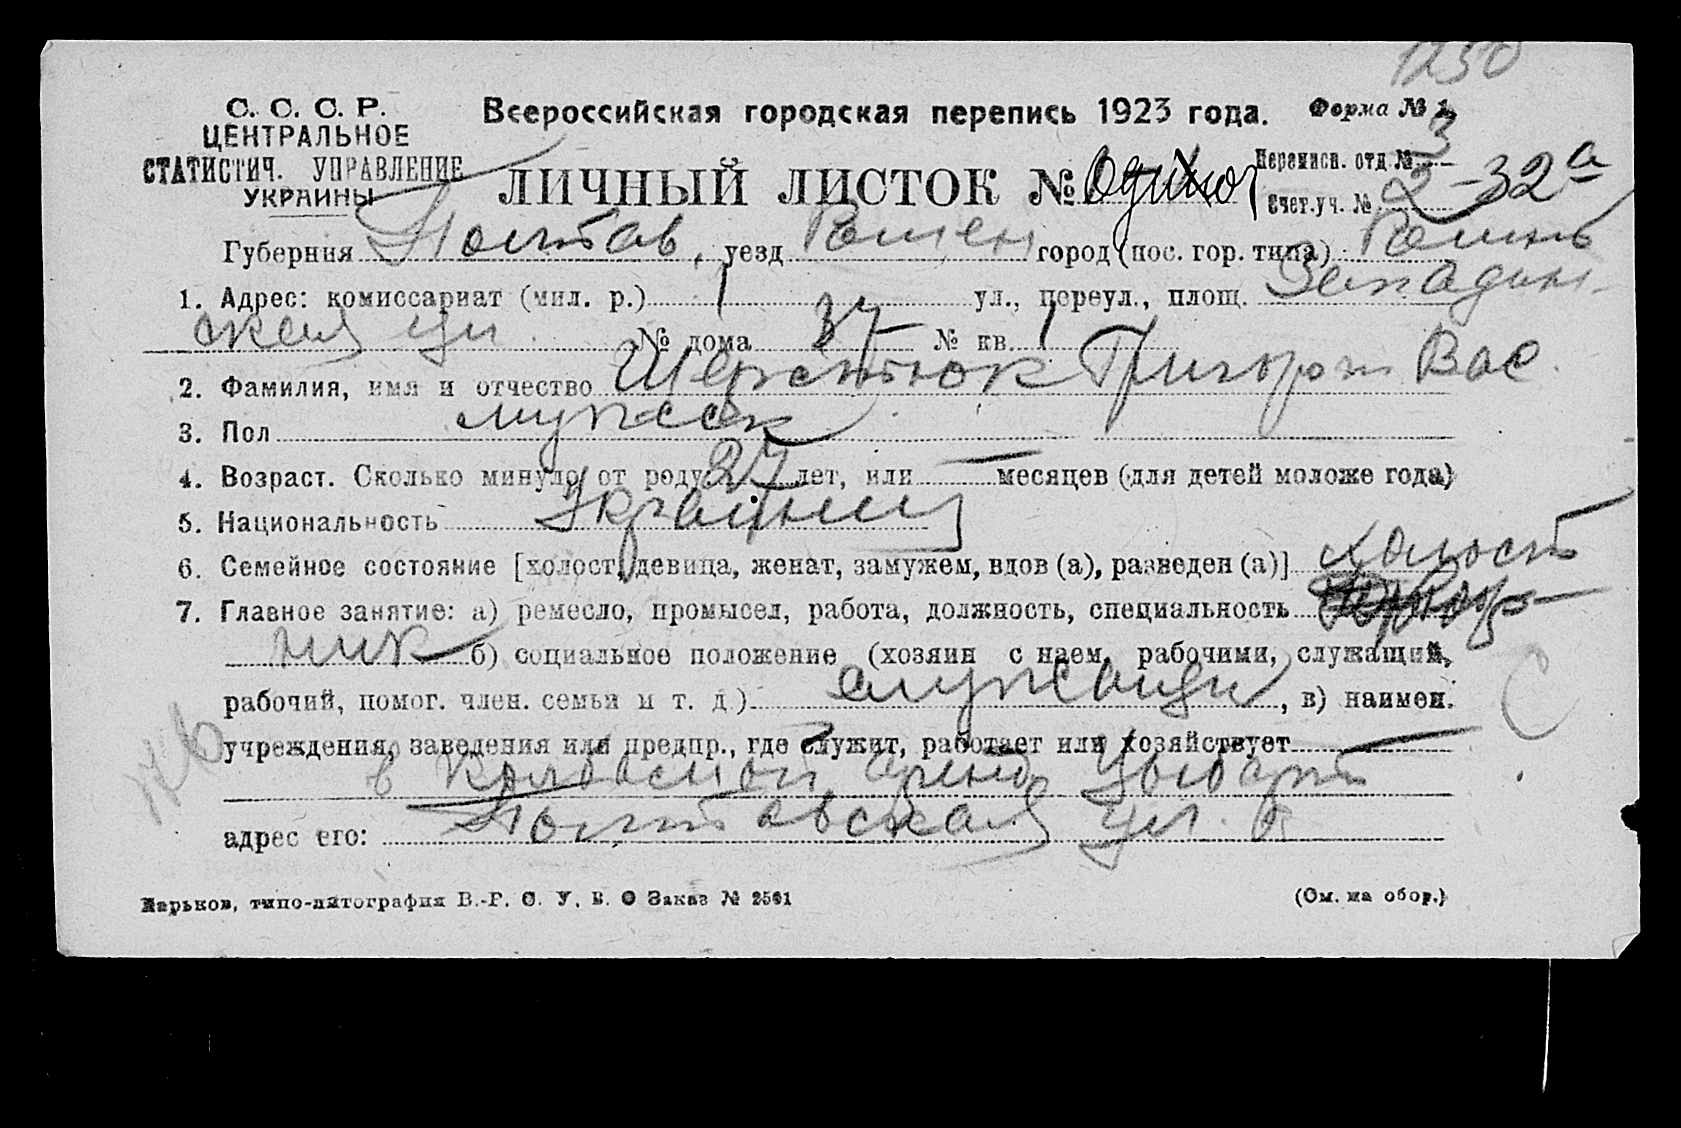 1250
С. С. С. Р.
ЦЕНТРАЛЬНОЕ
СТАТИСТИЧ. УПРАВЛЕНИЕ
УКРАИНЫ
Всероссийская городская перепись 1923 года.
Форма № 1
ЛИЧНЫЙ ЛИСТОК №
Переписн. отд № 3
Счет.уч. № 2-32а
Губерния Полтав. уезд Ромен город (пос. гор. типа) Ромны
1. Адрес: комиссариат (мил. р.) 1 ул., переул., площ.
ская ул. № дома 37 № кв. 1
2. Фамилия, имя и отчество Шерстюк Григорий Вас.
3. Пол мужск
4. Возраст. Сколько минуло от роду 27 лет, или — месяцев (для детей моложе года)
5. Национальность Украинец
6. Семейное состояние [холост, девица, женат, замужем, вдов (а), разведен (а)] холост
7. Главное занятие: а) ремесло, промысел, работа, должность, специальность
ник б) социальное положение (хозяин с наем. рабочими, служащий,
рабочий, помог. член. семьи и т. д.) служащий, в) наимен.
учреждения, заведения или предпр., где служит, работает или хозяйствует
в Колбасной
адрес его: Полтавская ул.
Харьков, типо-литография В.-Р. С. У. В. О Заказ № 2561
(См. на обор.)